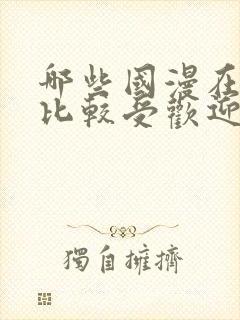 哪些國漫在
比較受歡迎
獨自擁擠